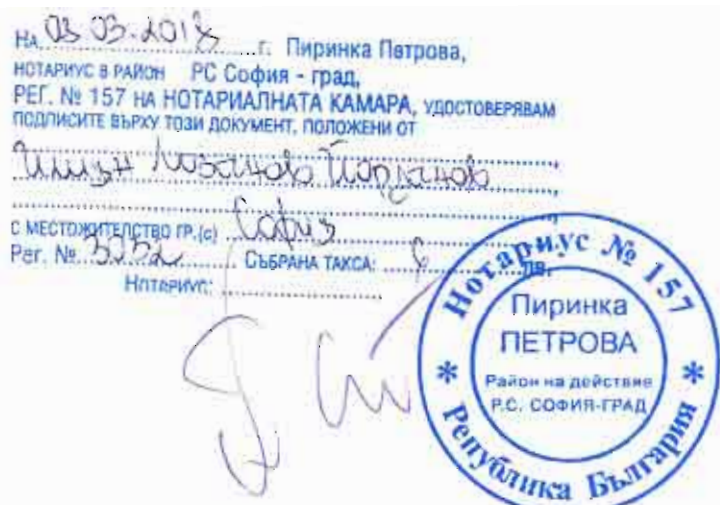 На 03.03.2018 г. Пиринка Петрова,
НОТАРИУС В РАЙОН РС София - град,
РЕГ. № 157 НА НОТАРИАЛНАТА КАМАРА, УДОСТОВЕРЯВАМ
ПОДПИСИТЕ ВЪРХУ ТОЗИ ДОКУМЕНТ, ПОЛОЖЕНИ ОТ
Лозанов Йорданов
С МЕСТОЖИТЕЛСТВО ГР.(с) София
Рег. № 3032 СЪБРАНА ТАКСА: 6 лв.
НОТАРИУС:
Нотариус № 157
Пиринка
ПЕТРОВА
Район на действие
Р.С. СОФИЯ-ГРАД
* Република България *